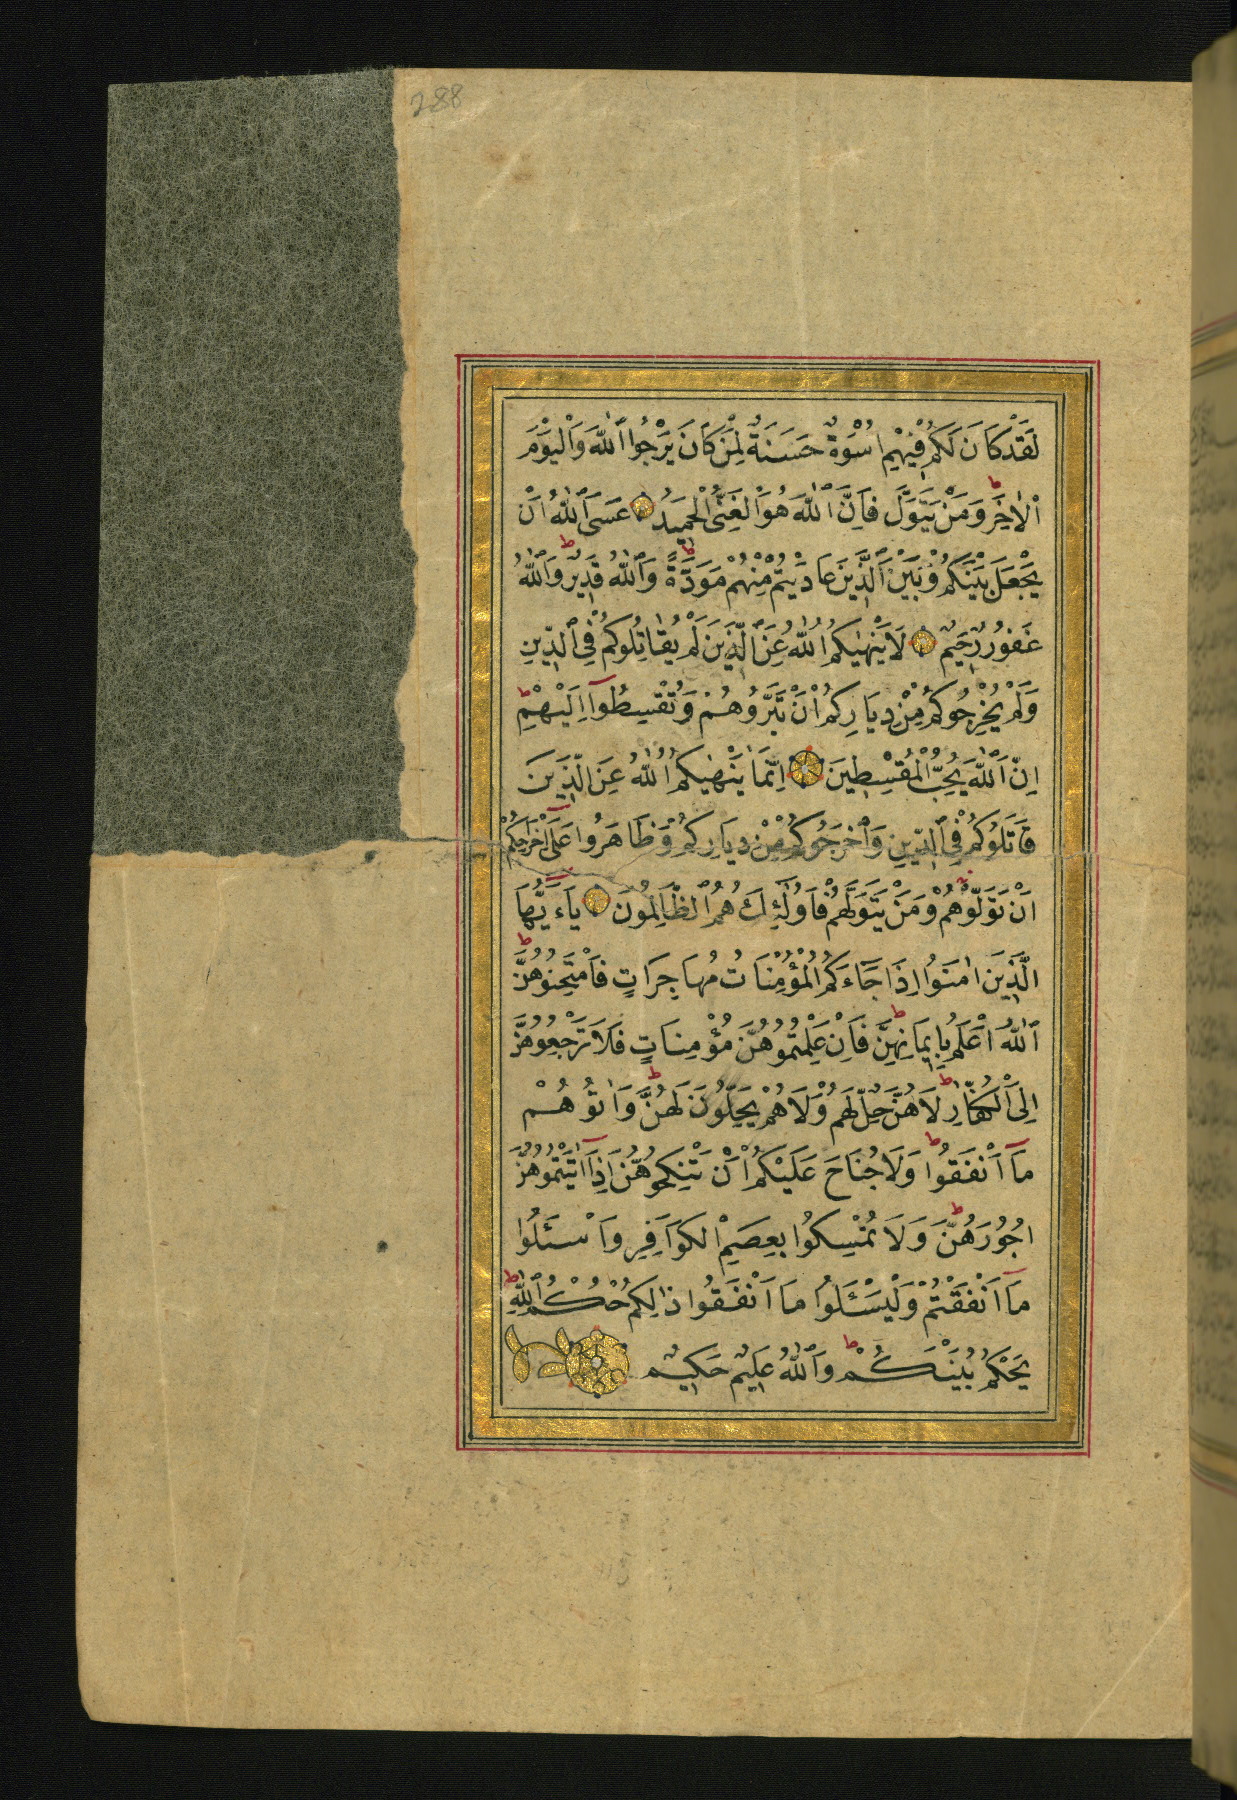 288
لَقَدْ كَانَ لَكُمْ فِيهِمْ اُسْوَةٌ حَسَنَةٌ لِمَنْ كَانَ يَرْجُوا اللّٰهَ وَالْيَوْمَ
الْاٰخِرَ وَمَنْ يَتَوَلَّ فَاِنَّ اللّٰهَ هُوَ الْغَنِىُّ الْحَمِيدُ عَسَى اللّٰهُ اَنْ
يَجْعَلَ بَيْنَكُمْ وَبَيْنَ الَّذِينَ عَادَيْتُمْ مِنْهُمْ مَوَدَّةً وَاللّٰهُ قَدِيرٌ وَاللّٰهُ
غَفُورٌ رَحِيمٌ لَا يَنْهٰيكُمُ اللّٰهُ عَنِ الَّذِينَ لَمْ يُقَاتِلُوكُمْ فِى الدِّينِ
وَلَمْ يُخْرِجُوكُمْ مِنْ دِيَارِكُمْ اَنْ تَبَرُّوهُمْ وَتُقْسِطُوا اِلَيْهِمْ
اِنَّ اللّٰهَ يُحِبُّ الْمُقْسِطِينَ اِنَّمَا يَنْهٰيكُمُ اللّٰهُ عَنِ الَّذِينَ
قَاتَلُوكُمْ فِى الدِّينِ وَاَخْرَجُوكُمْ مِنْ دِيَارِكُمْ وَظَاهَرُوا عَلٰى اِخْرَاجِكُمْ
اَنْ تَوَلَّوْهُمْ وَمَنْ يَتَوَلَّهُمْ فَاُولٰئِكَ هُمُ الظَّالِمُونَ يَاءَيُّهَا
الَّذِينَ اٰمَنُوا اِذَا جَاءَكُمُ الْمُؤْمِنَاتُ مُهَاجِرَاتٍ فَامْتَحِنُوهُنَّ
اَللّٰهُ اَعْلَمُ بِاِيمَانِهِنَّ فَاِنْ عَلِمْتُمُوهُنَّ مُؤْمِنَاتٍ فَلَا تَرْجِعُوهُنَّ
اِلَى الْكُفَّارِ لَا هُنَّ حِلٌّ لَهُمْ وَلَا هُمْ يَحِلُّونَ لَهُنَّ وَاٰتُوهُمْ
مَا اَنْفَقُوا وَلَا جُنَاحَ عَلَيْكُمْ اَنْ تَنْكِحُوهُنَّ اِذَا اٰتَيْتُمُوهُنَّ
اُجُورَهُنَّ وَلَا تُمْسِكُوا بِعِصَمِ الْكَوَافِرِ وَاسْئَلُوا
مَا اَنْفَقْتُمْ وَلْيَسْئَلُوا مَا اَنْفَقُوا ذٰلِكُمْ حُكْمُ اللّٰهِ
يَحْكُمُ بَيْنَكُمْ وَاللّٰهُ عَلِيمٌ حَكِيمٌ